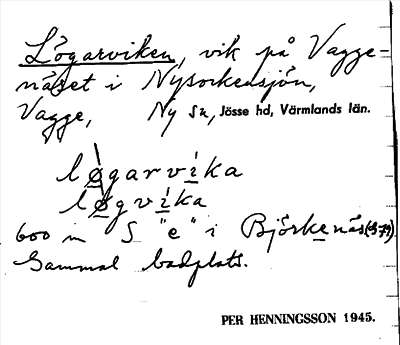 Lögarviken, vik på Vagge=
näset i Nysockensjön,
Vagge, Ny Sn, Jösse hd, Värmlands län.
løgarvika
løgvika
600 m S "e" i Björkenäs (879)
Gammal badplats.
PER HENNINGSSON 1945.